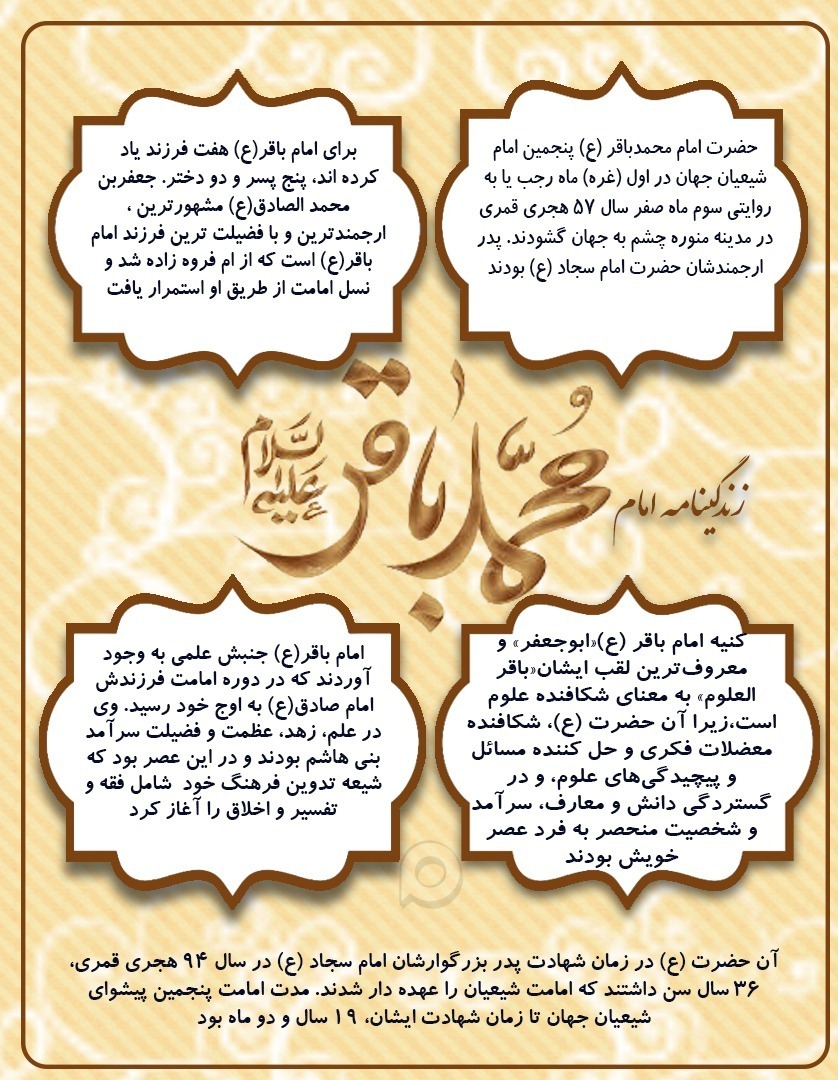 حضرت امام محمدباقر (ع) پنجمین امام
شیعیان جهان در اول (غره) ماه رجب یا به
روایتی سوم ماه صفر سال ۵۷ هجری قمری
در مدینه منوره چشم به جهان گشودند. پدر
ارجمندشان حضرت امام سجاد (ع) بودند
برای امام باقر(ع) هفت فرزند یاد
کرده اند، پنج پسر و دو دختر. جعفربن
محمد الصادق(ع) مشهورترین ،
ارجمندترین و با فضیلت ترین فرزند امام
باقر(ع) است که از ام فروه زاده شد و
نسل امامت از طریق او استمرار یافت
زندگینامه امام
محمد باقر
علیه السلام
کنیه امام باقر (ع)«ابوجعفر» و
معروف‌ترین لقب ایشان«باقر
العلوم» به معنای شکافنده علوم
است،زیرا آن حضرت (ع)، شکافنده
معضلات فکری و حل کننده مسائل
و پیچیدگی‌های علوم، و در
گستردگی دانش و معارف، سرآمد
و شخصیت منحصر به فرد عصر
خویش بودند
امام باقر(ع) جنبش علمی به وجود
آوردند که در دوره امامت فرزندش
امام صادق(ع) به اوج خود رسید. وی
در علم، زهد، عظمت و فضیلت سرآمد
بنی هاشم بودند و در این عصر بود که
شیعه تدوین فرهنگ خود شامل فقه و
تفسیر و اخلاق را آغاز کرد
آن حضرت (ع) در زمان شهادت پدر بزرگوارشان امام سجاد (ع) در سال ۹۴ هجری قمری،
۳۶ سال سن داشتند که امامت شیعیان را عهده دار شدند. مدت امامت پنجمین پیشوای
شیعیان جهان تا زمان شهادت ایشان، ۱۹ سال و دو ماه بود